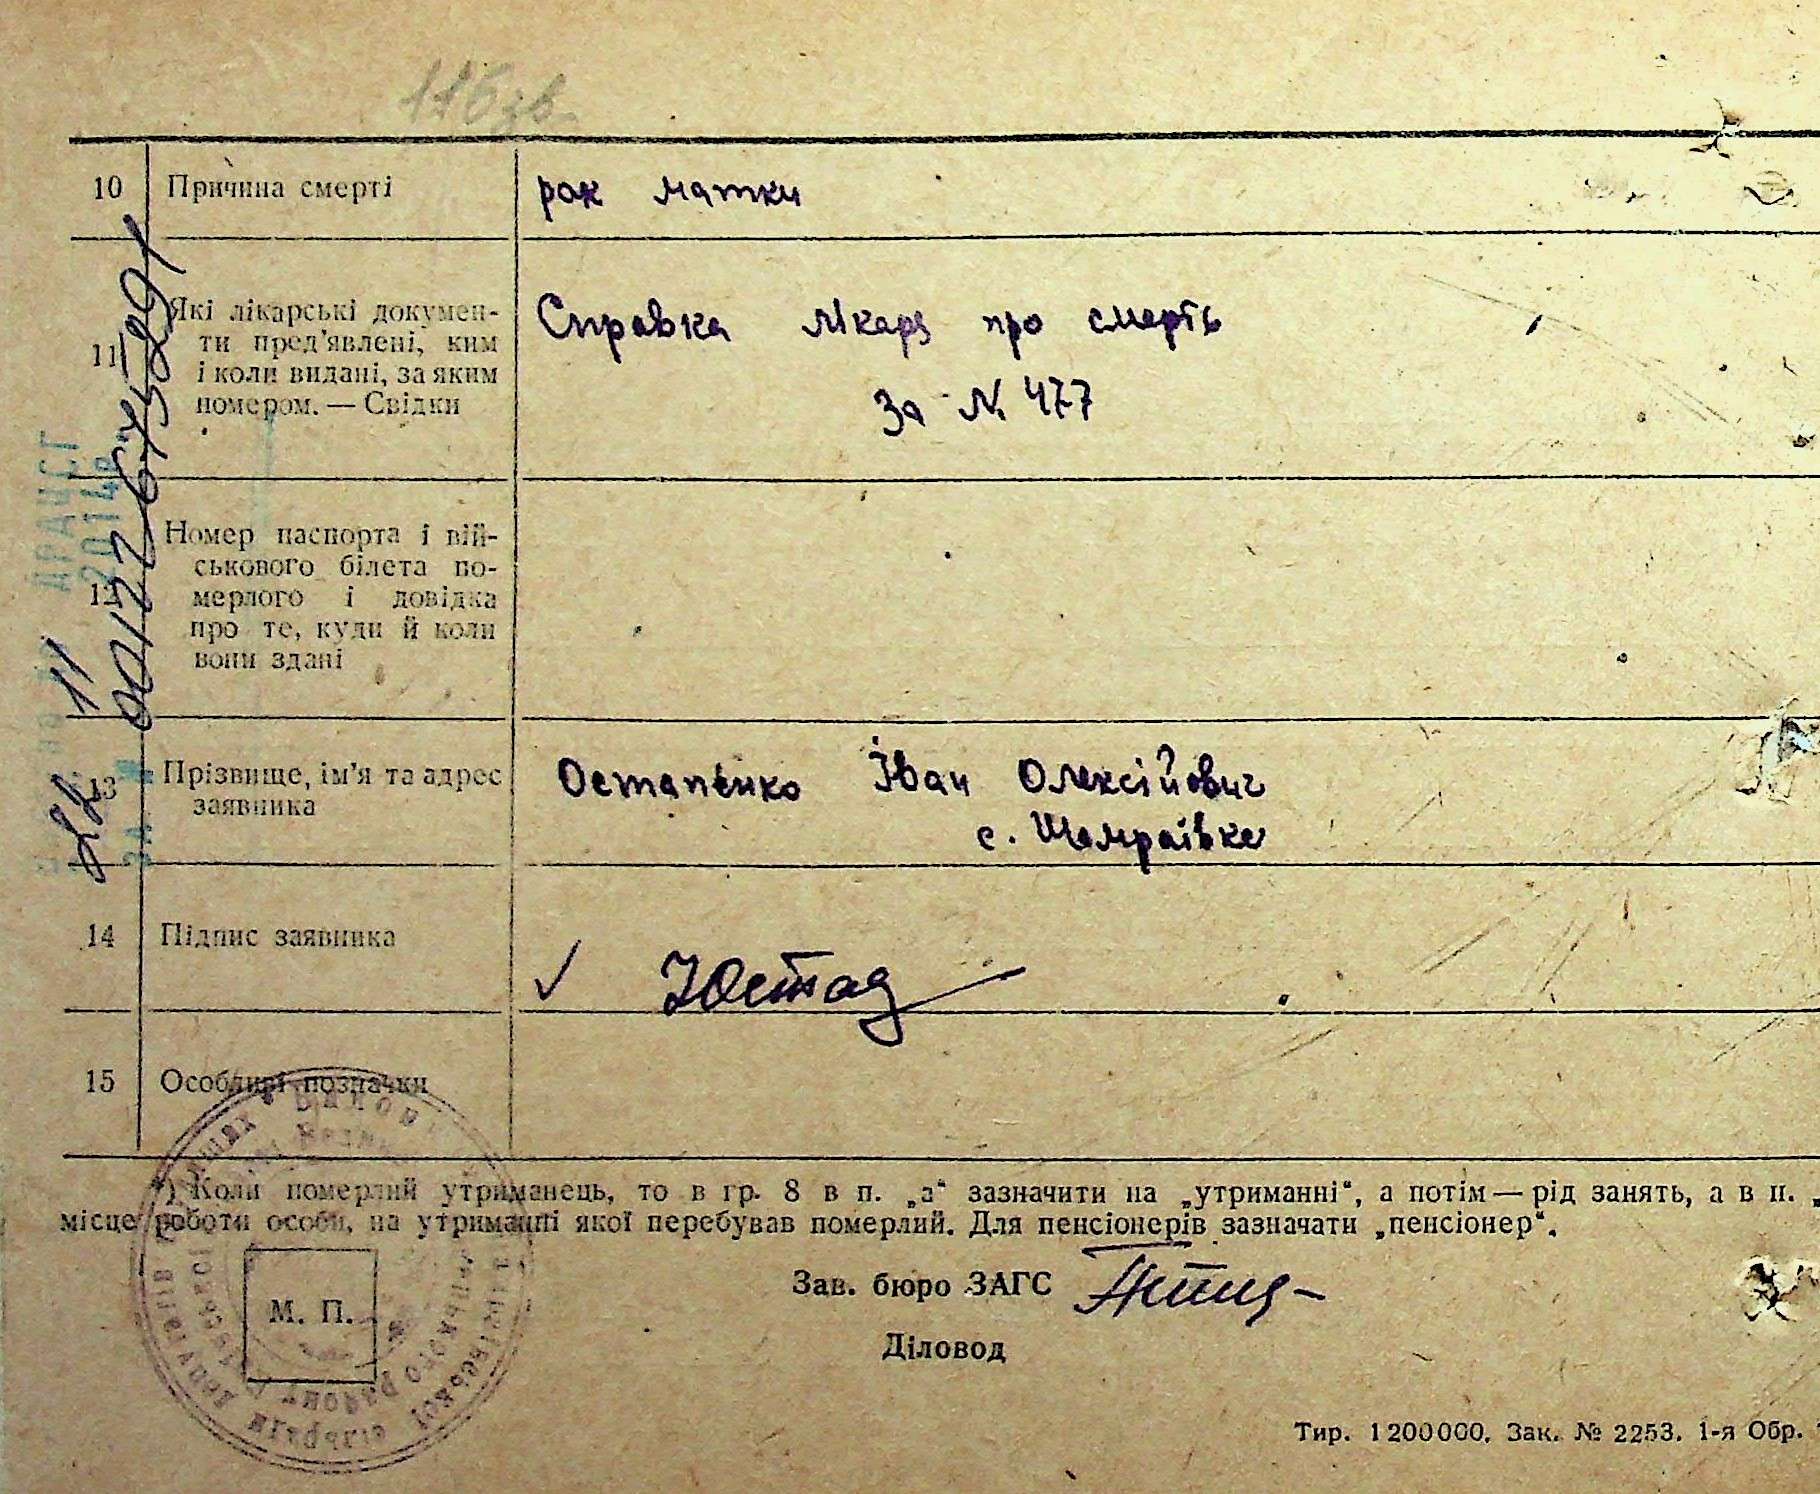 116 зв.
10 Причина смерті рак матки
11 Які лікарські докумен-
ти пред'явлені, ким
і коли видані, за яким
номером. — Свідки
Справка лікаря про смерть
За № 477
12 Номер паспорта і вій-
ськового білета по-
мерлого і довідка
про те, куди й коли
вони здані
13 Прізвище, ім'я та адрес
заявника
Остапенко Іван Олексійович
с. Шамраївка
14 Підпис заявника
15 Особливі позначки
ДРАЦСГ
2014р
22 11
00127675291
*) Коли померлий утриманець, то в гр. 8 в п. „а“ зазначити на „утриманні“, а потім — рід занять, а в п. „
місце роботи особи, на утриманні якої перебував померлий. Для пенсіонерів зазначати „пенсіонер“.
Зав. бюро ЗАГС
М. П.
Діловод
Тир. 1200000. Зак. № 2253. 1-я Обр.